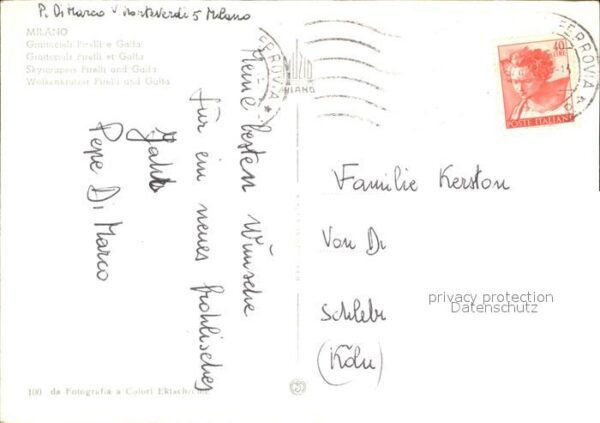 P. Di Marco V. Monteverdi 5 Milano
MILANO
Grattacieli Pirelli e Galfa
Gratteciels Pirelli et Galfa
Skyscrapers Pirelli and Galfa
Wolkenkratzer Pirelli und Galfa
Meine besten Wünsche
für ein neues frohlisches
Jahr
Pepe Di Marco
100 da Fotografia a Colori Ektachrome
FERROVIA
MILANO
40
LIRE
POSTE ITALIANE
FERROVIA
Familie Kerston
Von Di
Schlebr
(Köln)
privacy protection
Datenschutz